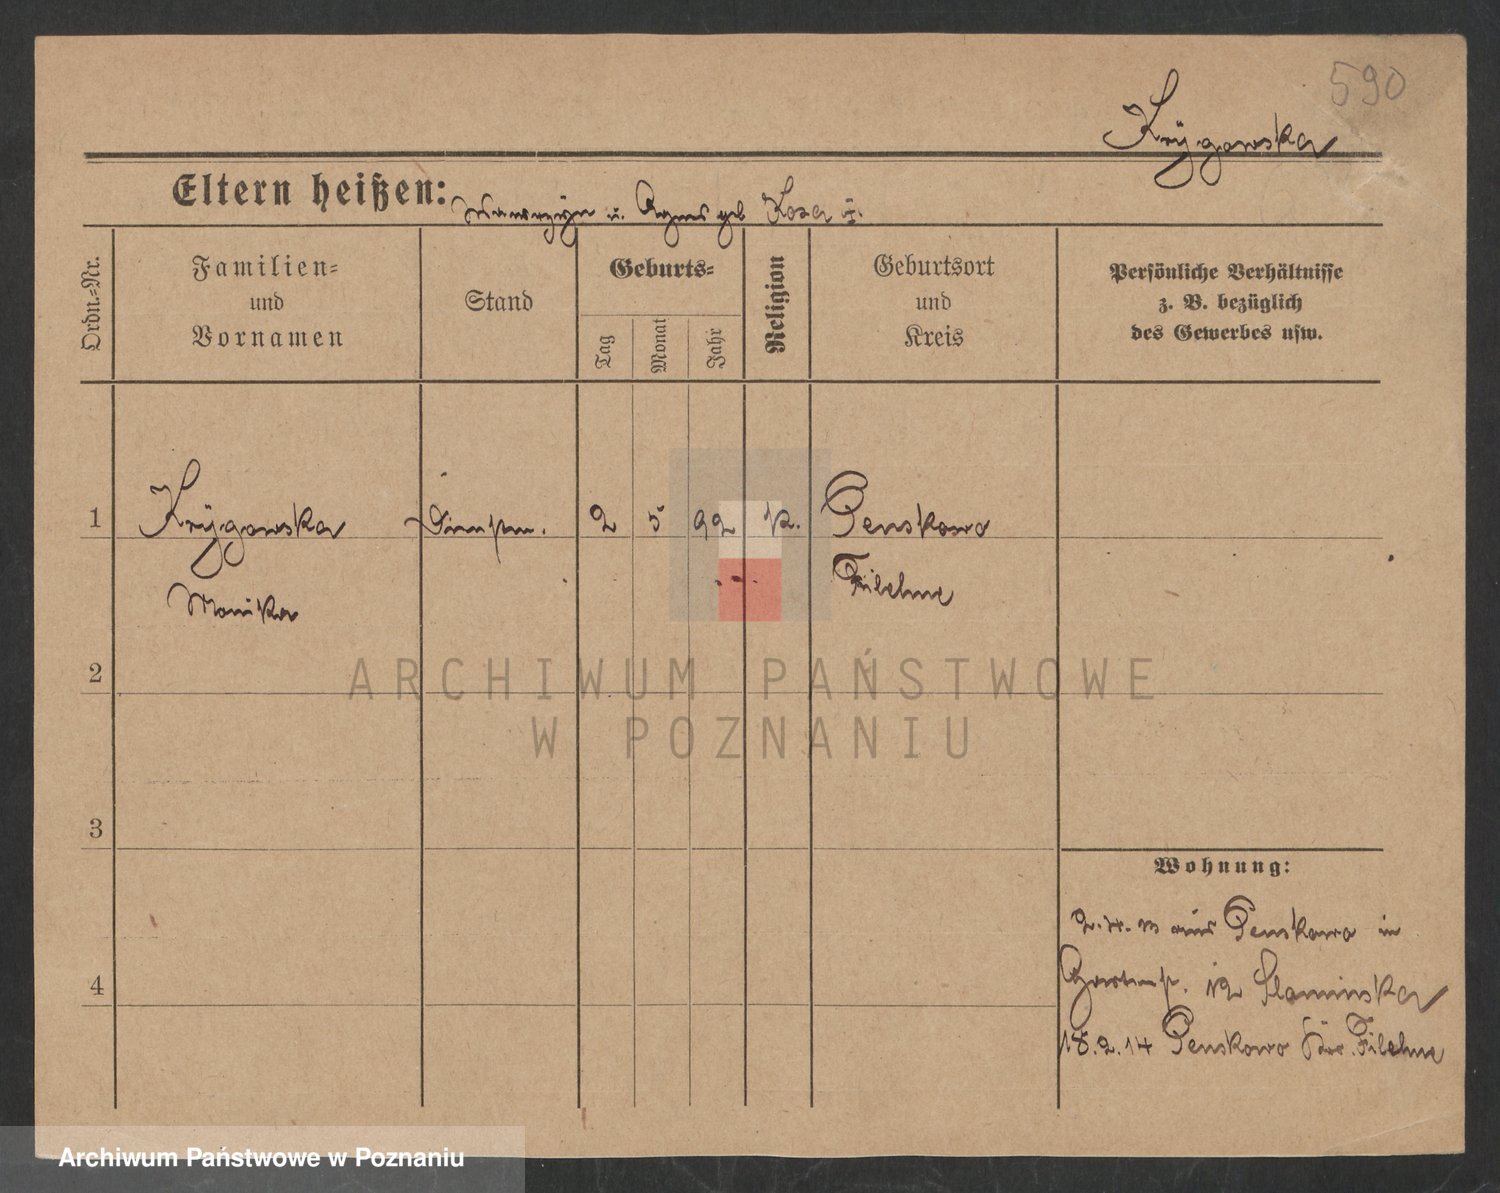 590
Krÿgowska
Eltern heißen: Wawrzyn u. Agnes geb Koza
Ordn.-Nr.
Familien-
und
Vornamen
Stand
Geburts-
Tag
Monat
Jahr
Religion
Geburtsort
und
Kreis
Persönliche Verhältnisse
z. B. bezüglich
des Gewerbes usw.
1 Krÿgowska 2 5 92 k. Penskowo
Monika Filehne
2
ARCHIWUM PAŃSTWOWE
W POZNANIU
3
Wohnung:
2.4.13 aus Penskowo in
4
Gartenstr. 12 Slaminska
18.2.14 Penskowo Kr. Filehne
Archiwum Państwowe w Poznaniu